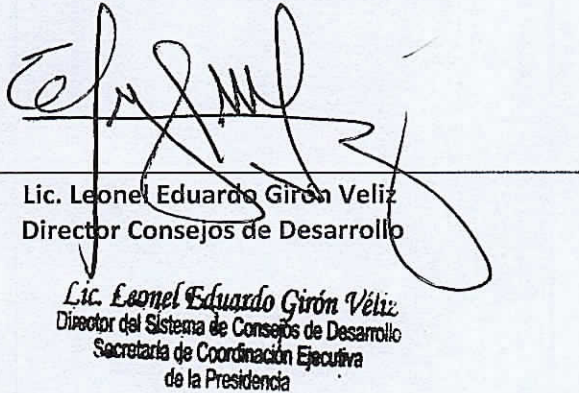 Lic. Leonel Eduardo Girón Veliz
Director Consejos de Desarrollo
Lic. Leonel Eduardo Girón Véliz
Director del Sistema de Consejos de Desarrollo
Secretaría de Coordinación Ejecutiva
de la Presidencia